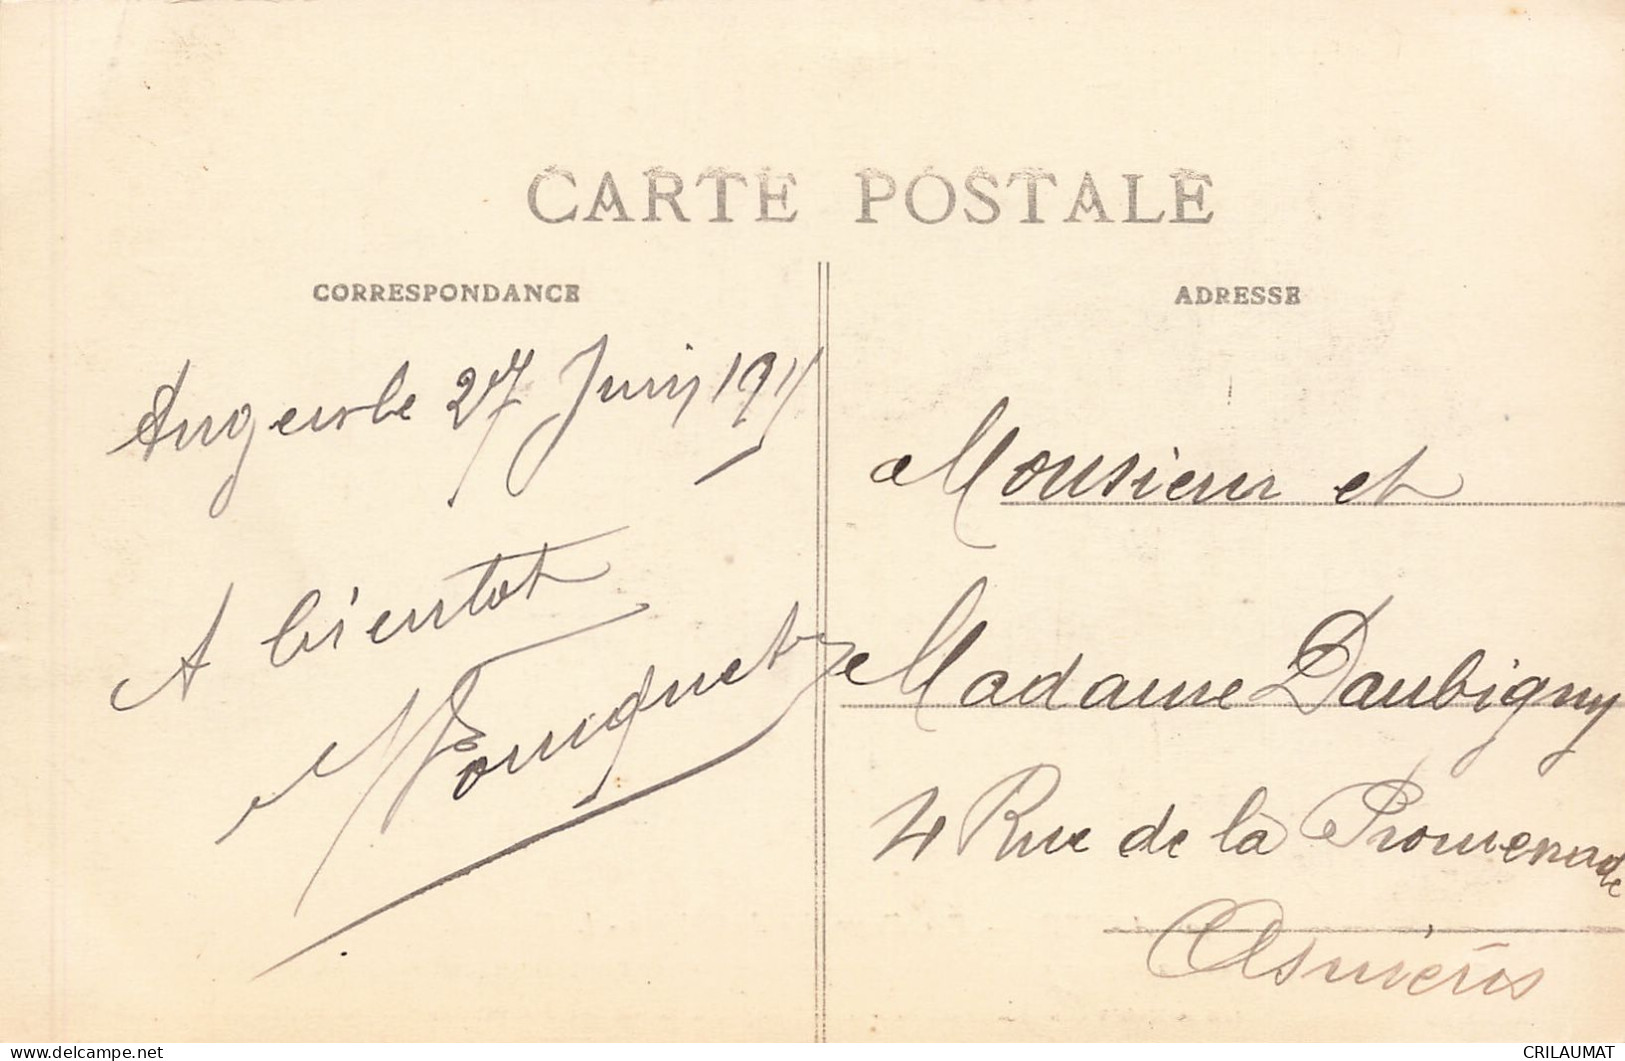 CARTE POSTALE
CORRESPONDANCE
Angers le 27 Juin 1911
A bientot
M Fouquet
ADRESSE
Monsieur et
Madame Daubigny
4 Rue de la Promenade
Asnières
www.delcampe.net
CRILAUMAT